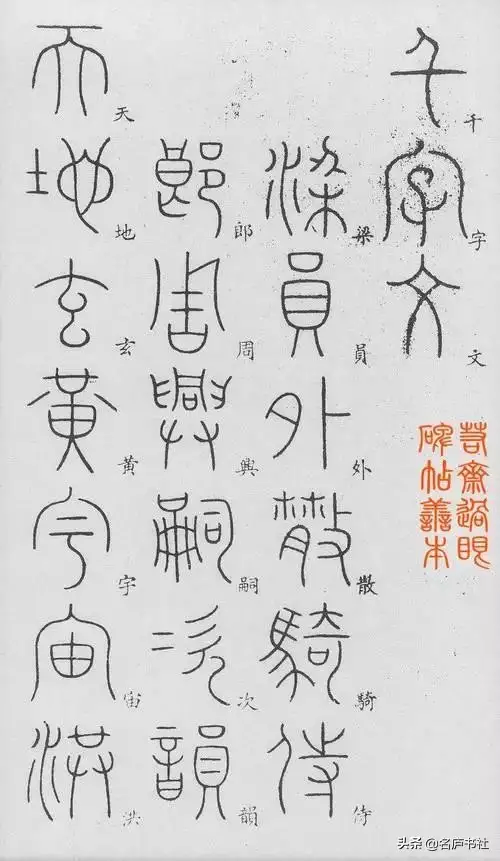 千字文
千字文
梁員外散騎侍
梁員外散騎侍
郎周興嗣次韻
郎周興嗣次韻
天地玄黃宇宙洪
天地玄黃宇宙洪
齋過眼
碑帖善本
头条 @名庐书社